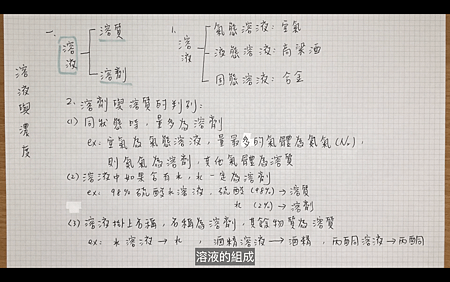 溶液與濃度
一、
溶液
溶質
溶劑
1.
溶液
氣態溶液：空氣
液態溶液：高粱酒
固態溶液：合金
2. 溶劑與溶質的判別：
(1) 同狀態時，量多為溶劑
ex: 空氣為氣態溶液，量最多的氣體為氮氣(N₂)，
則氮氣為溶劑，其他氣體為溶質
(2) 溶液中如果含有水，水一定為溶劑
ex: 98% 硫酸水溶液，硫酸 (98%) → 溶質
水 (2%) → 溶劑
(3) 溶液掛上名稱，名稱為溶劑，其餘物質為溶質
ex: 水溶液 → 水，酒精溶液 → 酒精，丙酮溶液 → 丙酮
溶液的組成